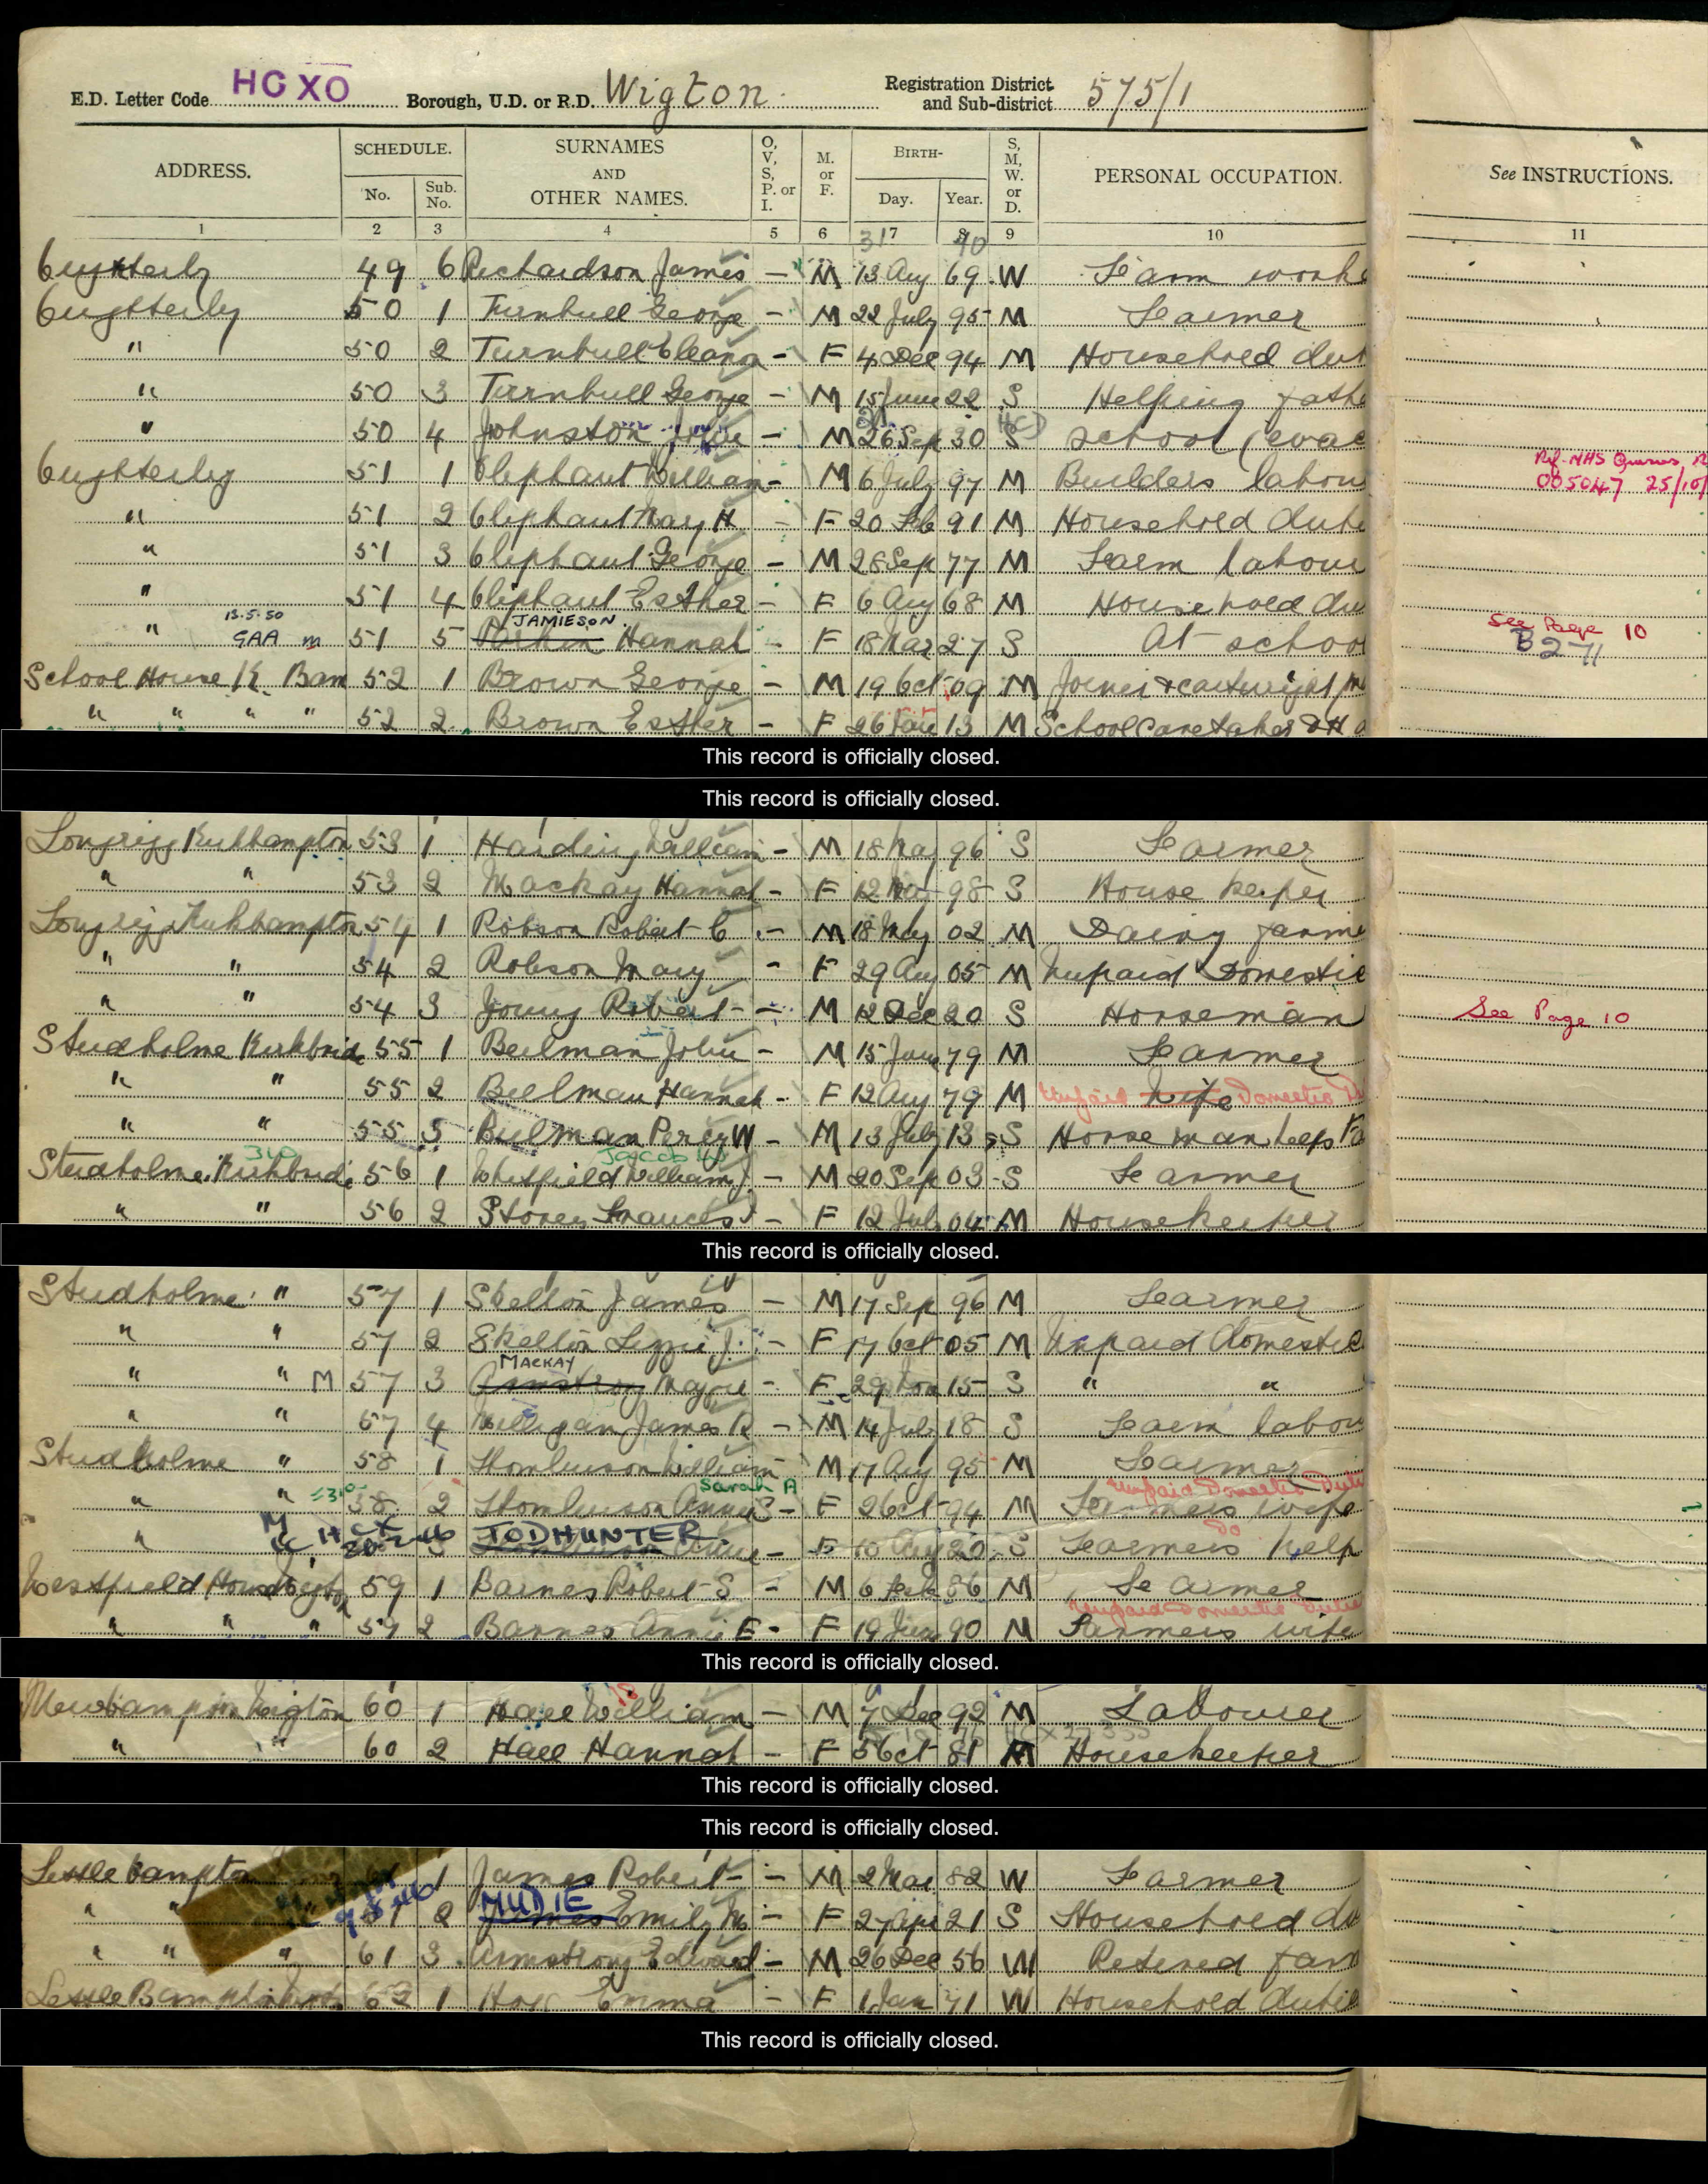 E.D. Letter Code HCXO Borough, U.D. or R.D. Wigton Registration District and Sub-district 575/1
ADDRESS. SCHEDULE. No. Sub. No. SURNAMES AND OTHER NAMES. O, V, S, P. or I. M. or F. BIRTH- Day. Year. S, M, W. or D. PERSONAL OCCUPATION. See INSTRUCTIONS.
1 2 3 4 5 6 7 8 9 10 11
31 40
49 6 Richardson James – M 13 Aug 69 W Farm worke
50 1 Turnbull George – M 22 July 95 M Farmer
" 50 2 Turnbull Eleanor – F 4 Dec 94 M Household dut
" 50 3 Turnbull George – M 15 June 22 S Helping fathe
" 50 4 Johnston – M 26 Sep 30 S School (evac
51 1 Oliphant William – M 6 July 97 M Builders labou
Ref. NHS
005047 25/10/
" 51 2 Oliphant Mary H – F 20 Feb 91 M Household dutie
" 51 3 Oliphant George – M 28 Sep 77 M Farm labour
" 51 4 Oliphant Esther – F 6 Aug 68 M Household du
13.5.50 JAMIESON. See Page 10
" GAA m 51 5 Hannah – F 18 Mar 27 S At school
School House K. Bam 52 1 Brown George – M 19 Oct 09 M Joiner & cartwright
" " " " 52 2 Brown Esther – F 26 Jan 13 M School caretaker
This record is officially closed.
This record is officially closed.
Longrigg Kirkbampton 53 1 Harding William – M 18 May 96 S Farmer
" " 53 2 Mackay Hannah – F 12 98 S House keeper
Longrigg Kirkbampton 54 1 Robson Robert C – M 18 May 02 M Dairy farme
" " 54 2 Robson Mary – F 29 Aug 05 M Unpaid Domestic
" " 54 3 Young Robert – M 12 Dec 20 S Horseman See Page 10
Studholme Kirkbride 55 1 Bulman John – M 15 79 M Farmer
" " 55 2 Bulman Hannah – F 12 Aug 79 M Unpaid Wife Domestic D
" " 55 3 Bulman Percy W – M 13 July 13 S Horse man helps Fa
310 Jacob W
Studholme Kirkbride 56 1 Whitfield William J. – M 20 Sep 03 S Farmer
" " 56 2 Storey Frances J – F 12 July 04 M Housekeeper
This record is officially closed.
Studholme " 57 1 Skelton James – M 17 Sep 96 M Farmer
" " 57 2 Skelton Lizzie J. – F 17 Oct 05 M Unpaid domestic
MACKAY
" " M 57 3 Armstrong – F 29 15 S " "
" " 57 4 Milligan James R – M 14 July 18 S Farm labou
Studholme " 58 1 Thomlinson William M 17 Aug 95 M Farmer
Sarah A Unpaid Domestic Dutie
" " 58 2 Thomlinson Annie S – F 2 Oct 94 M Farmers wife
TODHUNTER Do
" 3 Annie – F 10 Aug 20 S Farmers help
Westfield House Wigton 59 1 Barnes Robert S – M 6 Feb 86 M Farmer
Unpaid Domestic Dutie
" " " 59 2 Barnes Annie E – F 19 90 M Farmers wife
This record is officially closed.
Wigton 60 1 Hall William – M 7 Dec 92 M Labourer
" " 60 2 Hall Hannah – F 5 Oct 81 M Housekeeper
This record is officially closed.
This record is officially closed.
Little Bampton 61 1 James Robert – M 2 Mar 82 W Farmer
MUDIE
" " 61 2 James Emily M – F 27 Apr 21 S Household du
" " " 61 3 Armstrong Edward – M 26 Dec 56 W Retired farm
Little Bampton 62 1 Emma – F 1 Jan 71 W Household dutie
This record is officially closed.